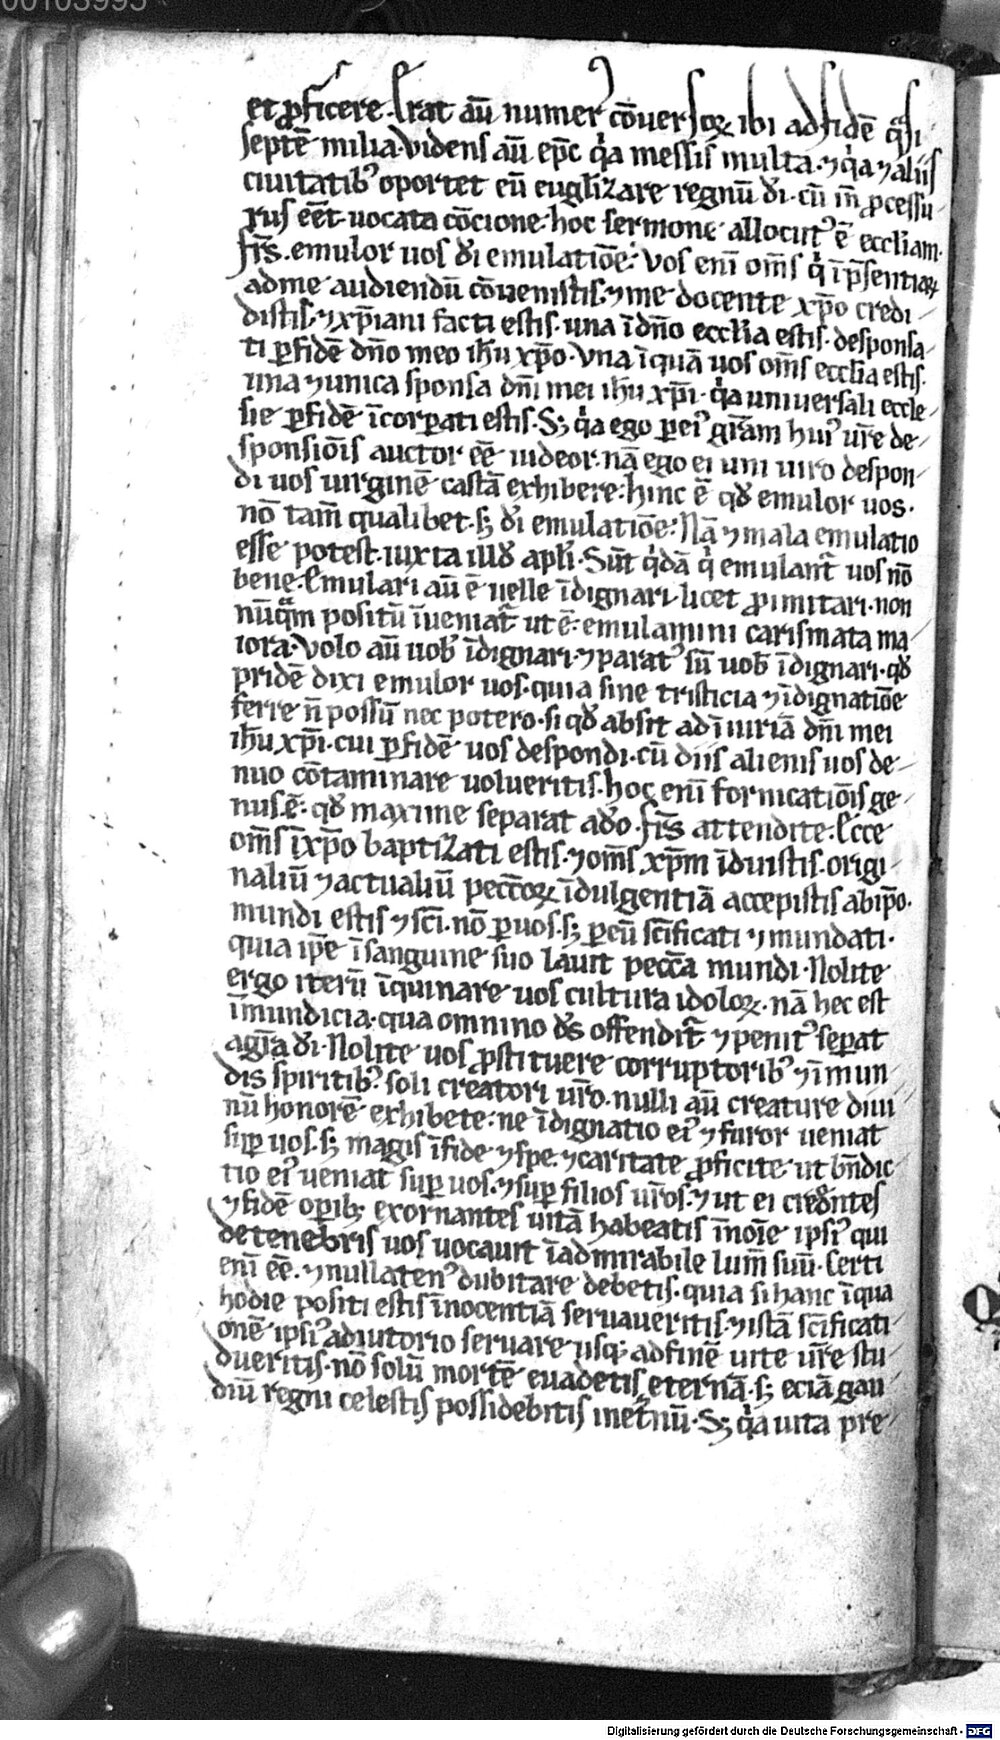 00103993
et ꝓficere. Erat aū numerꝰ cōuersoꝝ ibi ad fidē q̄si
septē milia. Videns aū ep̄c qͥa messis multa. ⁊ qͥa ⁊ aliis
ciuitatibꝰ oportet eū eugl̄izare regnū dī. cū īn ꝓcessu-
rus eēt. uocata cōcione. hoc sermone allocutꝰ ē eccl̄iam.
fr̄s. emulor uos dī emulatiōe. Vos enī om̄s qͥ ī p̄sentiaꝝ
ad me audiendū cōuenistis. ⁊ me docente xp̄o credi-
distis. ⁊ xp̄iani facti estis. una ī dn̄o ecclīa estis. desponsa-
ti ꝑ fidē dn̄o meo ih̄u xp̄o. Vna īquā uos om̄s ecclīa estis.
una ⁊ unica sponsa dn̄i mei ih̄u xp̄i. qͥa uniuersali eccle-
sie ꝑ fidē īcorꝑati estis. Sꝫ qͥa ego ꝑ eiꝰ gr̄am huiꝰ ur̄e de-
sponsiōis auctor eē uideor. nā ego ei uni uiro despon-
di uos uirginē castā exhibere. hinc ē qd̄ emulor uos.
nō tam̄ qualibet. sꝫ dī emulatiōe. Nā ⁊ mala emulatio
esse potest. iuxta illud apl̄i. Sūt qͥdā qͥ emulant᷑ uos nō
bene. Emulari aū ē uelle īdignari. licet ꝓ imitari. non
nūq̄m positū īueniat᷑ ut ē. emulamini carismata ma-
iora. Volo aū uob̄ īdignari. ⁊ paratꝰ sū uob̄ īdignari. qd̄
pridē dixi emulor uos. quia sine tristicia ⁊ īdignatiōe
ferre n̄ possū nec potero. si qd̄ absit ad īiuriā dn̄i mei
ih̄u xp̄i. cui ꝑ fidē uos despondi. cū diis alienis uos de-
nuo cōtaminare uolueritis. hoc enī fornicatiōis ge-
nus ē. qd̄ maxime separat a dō. fr̄s attendite. Ecce
om̄s ī xp̄o baptizati estis. ⁊ om̄s xp̄m īduistis. origi-
naliū ⁊ actualiū pecc̄oꝝ īdulgentiā accepistis ab ip̄o.
mundi estis ⁊ sc̄i. nō ꝑ uos. sꝫ ꝑ eū sc̄ificati ⁊ mundati.
quia ip̄e ī sanguine suo lauit pecc̄a mundi. Nolite
ergo iterū īquinare uos cultura idoloꝝ. nā hec est
īmundicia. qua omnino ds̄ offendit᷑ ⁊ penitꝰ seꝑat
a gr̄a dī. Nolite uos ꝓstituere corruptoribꝰ ⁊ īmun-
dis spiritibꝰ. soli creatori ur̄o. nulli aū creature diui-
nū honorē exhibete. ne īdignatio eiꝰ ⁊ furor ueniat
suꝑ uos. sꝫ magis ī fide ⁊ spe. ⁊ caritate ꝓficite. ut bn̄dic-
tio eiꝰ ueniat suꝑ uos. ⁊ suꝑ filios ur̄os. ⁊ ut ei credentes
⁊ fidē oꝑibꝫ exornantes uitā habeatis ī noīe ipsiꝰ qui
de tenebris uos uocauit ī admirabile lum̄ suū. Certi
enī eē. ⁊ nullatenꝰ dubitare debetis. quia si hanc ī qua
hodie positi estis īnocentiā seruaueritis. ⁊ istā sc̄ificati-
onē ipsiꝰ adiutorio seruare usqꝫ ad finē uite ur̄e stu-
dueritis. nō solū mortē euadetis eternā. sꝫ eciā gau-
diū regni celestis possidebitis inet᷑nū. Sꝫ qͥa uita pre-
Digitalisierung gefördert durch die Deutsche Forschungsgemeinschaft - DFG